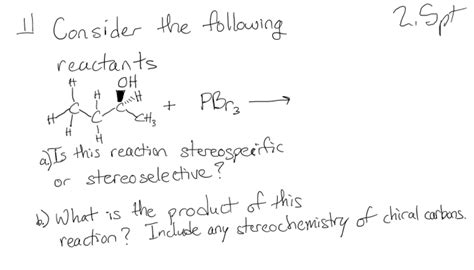 1) Consider the following
2.5pt
reactants
H H OH
H C C H
H H CH3 + PBr3 →
a) Is this reaction stereospecific
or stereoselective?
b) What is the product of this
reaction? Include any stereochemistry of chiral carbons.